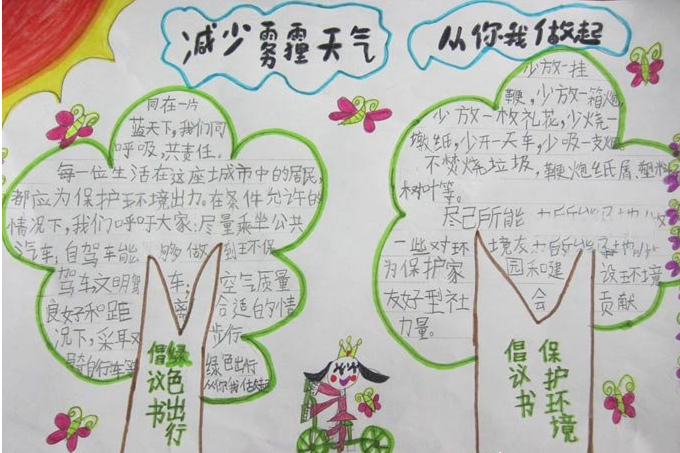 减少雾霾天气
从你我做起
同在一片
蓝天下,我们同
呼吸,共责任。
每一位生活在这座城市中的居民,
都应为保护环境出力。在条件允许的
情况下,我们呼吁大家:尽量乘坐公共
汽车;自驾车能够做到环保
驾车文明驾车;空气质量
良好和距离合适的情
况下,采取步行
骑自行车等绿色出行
从你我做起
绿色出行
倡议书
少放一挂
鞭,少放一箱炮,
少放一枚礼花,少烧一
墩纸,少开一天车,少吸一支烟
不焚烧垃圾,鞭炮纸屑,塑料
树叶等。
尽己所能
一些对环境友
为保护家园和建设环境
友好型社会贡献
力量。
保护环境
倡议书